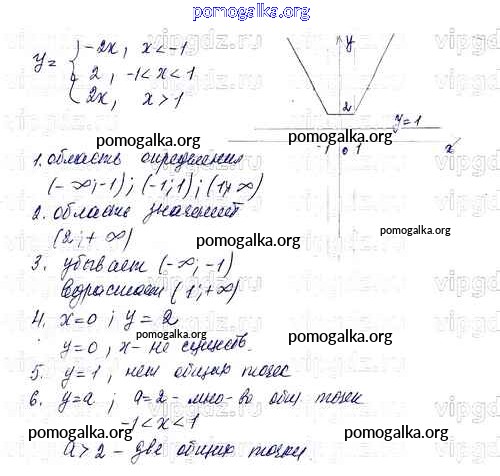 pomogalka.org
y = { -2x, x < -1
2, -1 < x < 1
2x, x > 1
y
2
y=1
-1 0 1 x
1. область определения
(-∞; -1); (-1; 1); (1; +∞)
2. область значений
(2; +∞)
3. убывает (-∞; -1)
возрастает (1; +∞)
4. x=0; y=2
y=0, x - не существ.
5. y=1, нет общих точек
6. y=a; a=2 - мно-во общ точек
-1<x<1
a>2 - две общих точки.
pomogalka.org
pomogalka.org
pomogalka.org
pomogalka.org
pomogalka.org
pomogalka.org
pomogalka.org
pomogalka.org
pomogalka.org
pomogalka.org